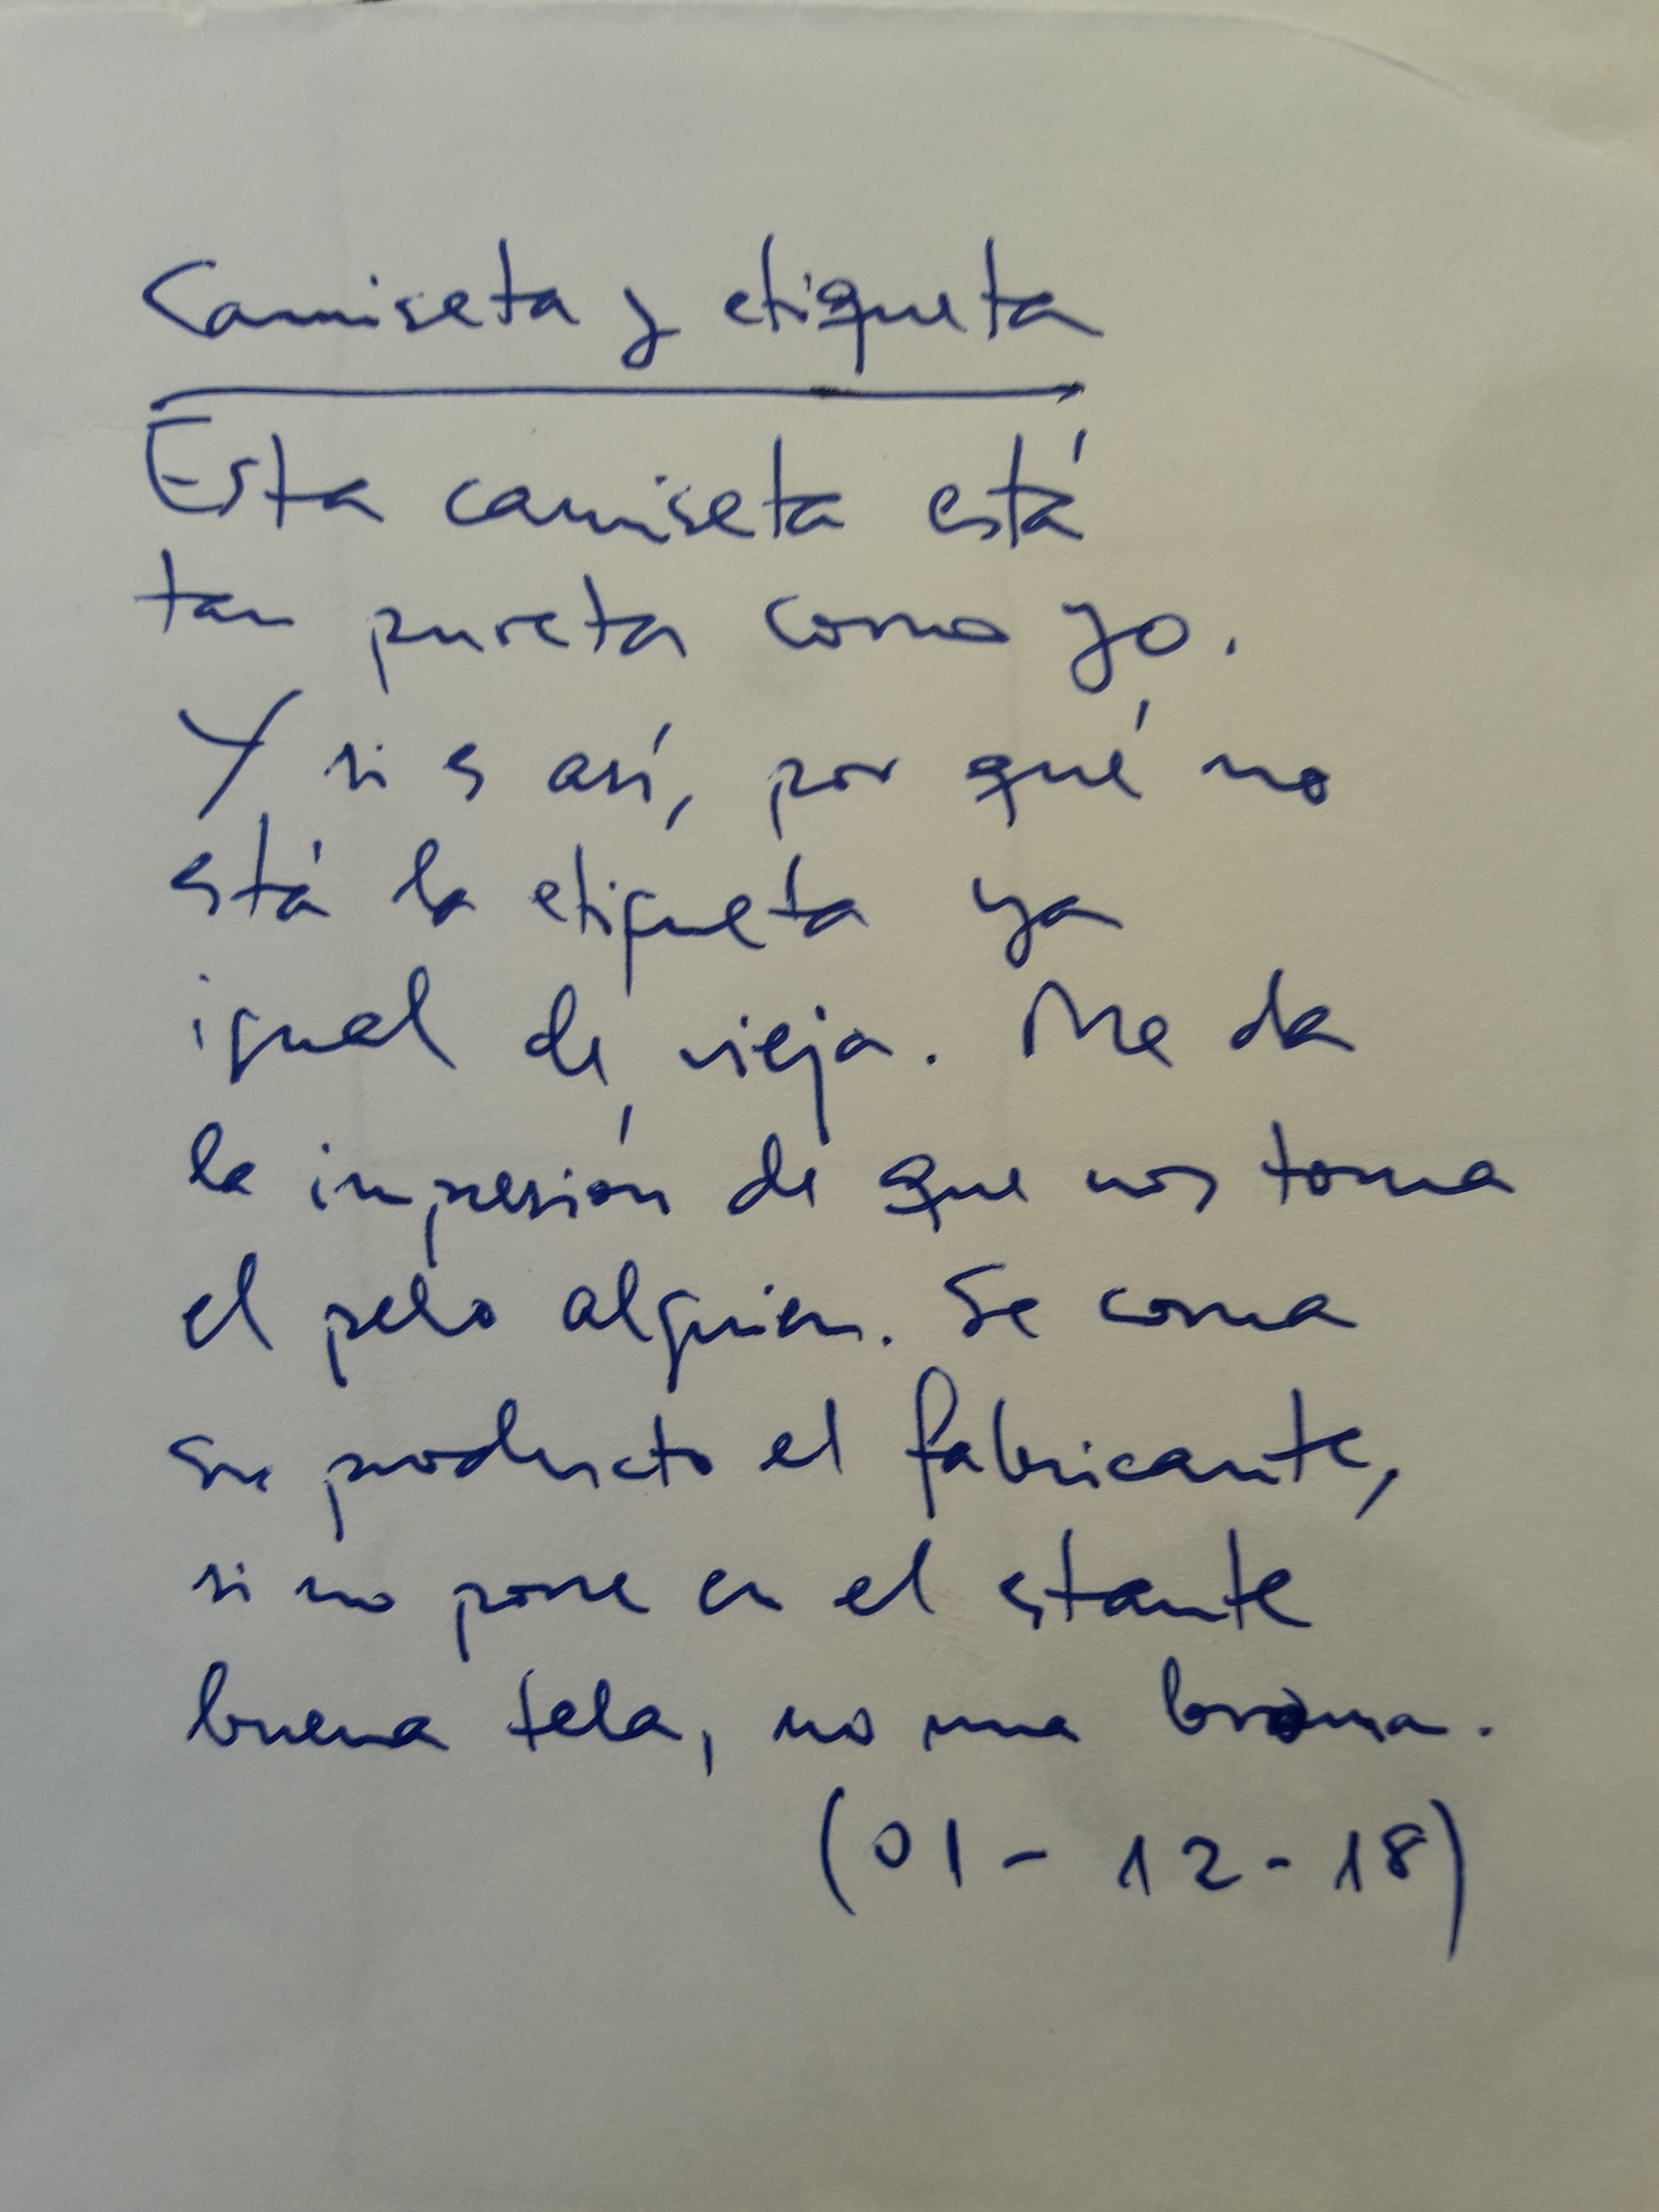 Camiseta y etiqueta
Esta camiseta está
tan pureta como yo.
Y si es así, por qué no
está la etiqueta ya
igual de vieja. Me da
la impresión de que nos toma
el pelo alguien. Se coma
su producto el fabricante,
si no pone en el estante
buena tela, no una broma.
(01-12-18)